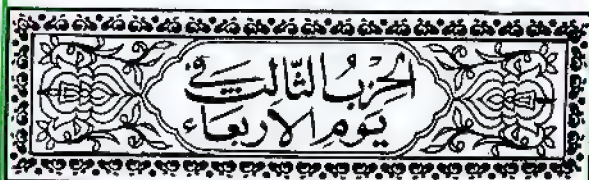 الحِزْبُ الثَّالِثُ فِي
يَومِ الاربعَاء